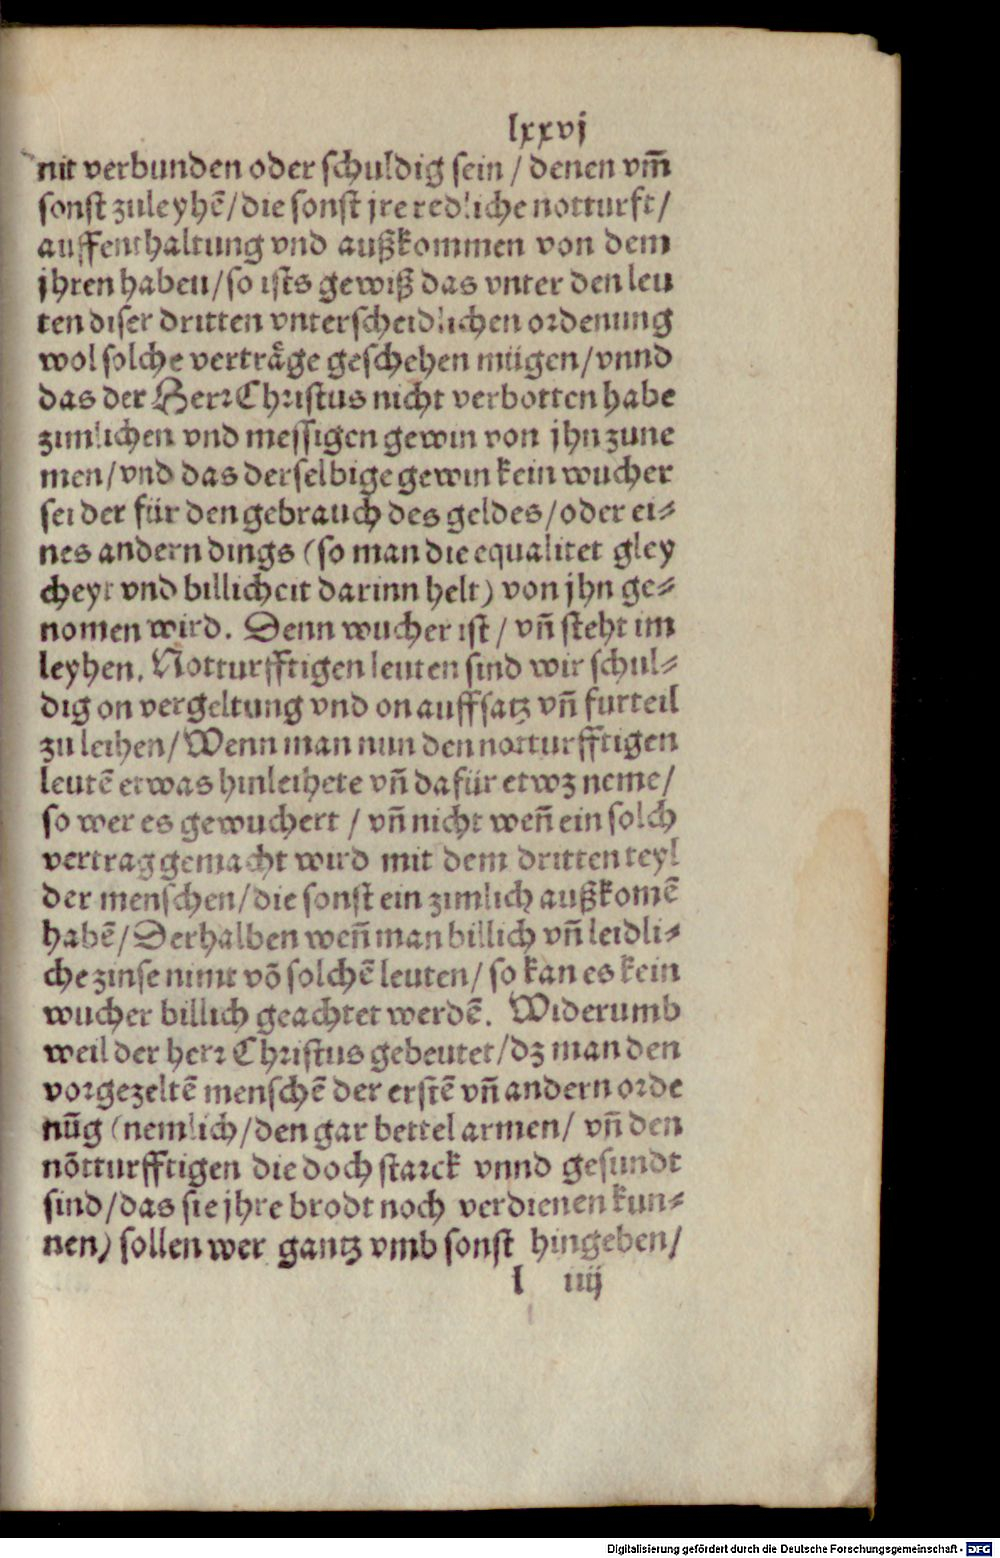 lxxvj
nit verbunden oder schuldig sein / denen vm̄
sonst zuleyhē/die sonst jre redliche notturft/
auffenthaltung vnd außkommen von dem
jhren haben/so ists gewiß das vnter den leu
ten diser dritten vnterscheidlichen ordenung
wol solche verträge geschehen mügen/vnnd
das der Herr Christus nicht verbotten habe
zimlichen vnd messigen gewin von jhn zune
men/vnd das derselbige gewin kein wucher
sei der für den gebrauch des geldes/oder ei⸗
nes andern dings (so man die equalitet gley
cheyt vnd billicheit darinn helt) von jhn ge⸗
nomen wird. Denn wucher ist / vn̄ steht im
leyhen. Notturfftigen leuten sind wir schul⸗
dig on vergeltung vnd on auffsatz vn̄ furteil
zu leihen/Wenn man nun den notturfftigen
leutē etwas hinleihete vn̄ dafür etwz neme/
so wer es gewuchert / vn̄ nicht wen̄ ein solch
vertrag gemacht wird mit dem dritten teyl
der menschen/die sonst ein zimlich außkomē
habē/Derhalben wen̄ man billich vn̄ leidli⸗
che zinse nimt vō solchē leuten/ so kan es kein
wucher billich geachtet werdē. Widerumb
weil der herr Christus gebeutet/dz man den
vorgezeltē menschē der erstē vn̄ andern orde
nūg (nemlich/den gar bettel armen/ vn̄ den
nōtturfftigen die doch starck vnnd gesundt
sind/das sie jhre brodt noch verdienen kun⸗
nen) sollen wer gantz vmb sonst hingeben/
l iiij
Digitalisierung gefördert durch die Deutsche Forschungsgemeinschaft - DFG